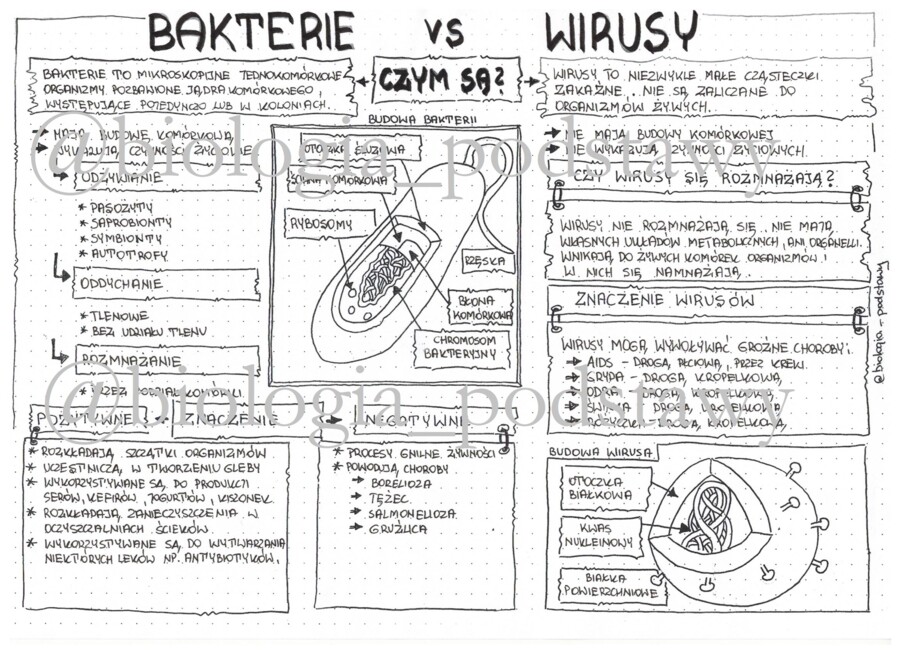 BAKTERIE VS WIRUSY
CZYM SĄ?
BAKTERIE TO MIKROSKOPIJNE JEDNOKOMÓRKOWE
ORGANIZMY POZBAWIONE JĄDRA KOMÓRKOWEGO,
WYSTĘPUJĄCE POJEDYNCZO LUB W KOLONIACH.
MAJĄ BUDOWĘ KOMÓRKOWĄ
WYKAZUJĄ CZYNNOŚCI ŻYCIOWE
ODŻYWIANIE
* PASOŻYTY
* SAPROBIONTY
* SYMBIONTY
* AUTOTROFY
ODDYCHANIE
* TLENOWE
* BEZ UDZIAŁU TLENU
ROZMNAŻANIE
* PRZEZ PODZIAŁ KOMÓRKI
BUDOWA BAKTERII
OTOCZKA ŚLUZOWA
ŚCIANA KOMÓRKOWA
RYBOSOMY
RZĘSKA
BŁONA
KOMÓRKOWA
CHROMOSOM
BAKTERYJNY
POZYTYWNE ZNACZENIE NEGATYWNE
* ROZKŁADAJĄ SZCZĄTKI ORGANIZMÓW
* UCZESTNICZĄ W TWORZENIU GLEBY
* WYKORZYSTYWANE SĄ DO PRODUKCJI
SERÓW, KEFIRÓW, JOGURTÓW, KISZONEK
* ROZKŁADAJĄ ZANIECZYSZCZENIA W
OCZYSZCZALNIACH ŚCIEKÓW.
* WYKORZYSTYWANE SĄ DO WYTWARZANIA
NIEKTÓRYCH LEKÓW NP. ANTYBIOTYKÓW.
* PROCESY GNILNE ŻYWNOŚCI
* POWODUJĄ CHOROBY
→ BORELIOZA
→ TĘŻEC
→ SALMONELLOZA
→ GRUŹLICA
WIRUSY TO NIEZWYKLE MAŁE CZĄSTECZKI
ZAKAŹNE, NIE SĄ ZALICZANE DO
ORGANIZMÓW ŻYWYCH.
NIE MAJĄ BUDOWY KOMÓRKOWEJ
NIE WYKAZUJĄ CZYNNOŚCI ŻYCIOWYCH.
CZY WIRUSY SIĘ ROZMNAŻAJĄ?
WIRUSY NIE ROZMNAŻAJĄ SIĘ, NIE MAJĄ
WŁASNYCH UKŁADÓW METABOLICZNYCH, ANI ORGANELLI.
WNIKAJĄ DO ŻYWYCH KOMÓREK ORGANIZMÓW I
W NICH SIĘ NAMNAŻAJĄ.
ZNACZENIE WIRUSÓW
WIRUSY MOGĄ WYWOŁYWAĆ GROŹNE CHOROBY:
→ AIDS - DROGĄ PŁCIOWĄ, PRZEZ KREW
→ GRYPA - DROGĄ KROPELKOWĄ
→ ODRA - DROGĄ KROPELKOWĄ
→ ŚWINKA - DROGĄ KROPELKOWĄ
→ RÓŻYCZKA - DROGĄ KROPELKOWĄ
BUDOWA WIRUSA
OTOCZKA
BIAŁKOWA
KWAS
NUKLEINOWY
BIAŁKA
POWIERZCHNIOWE
@biologia_podstawy
@biologia_podstawy
@biologia_podstawy